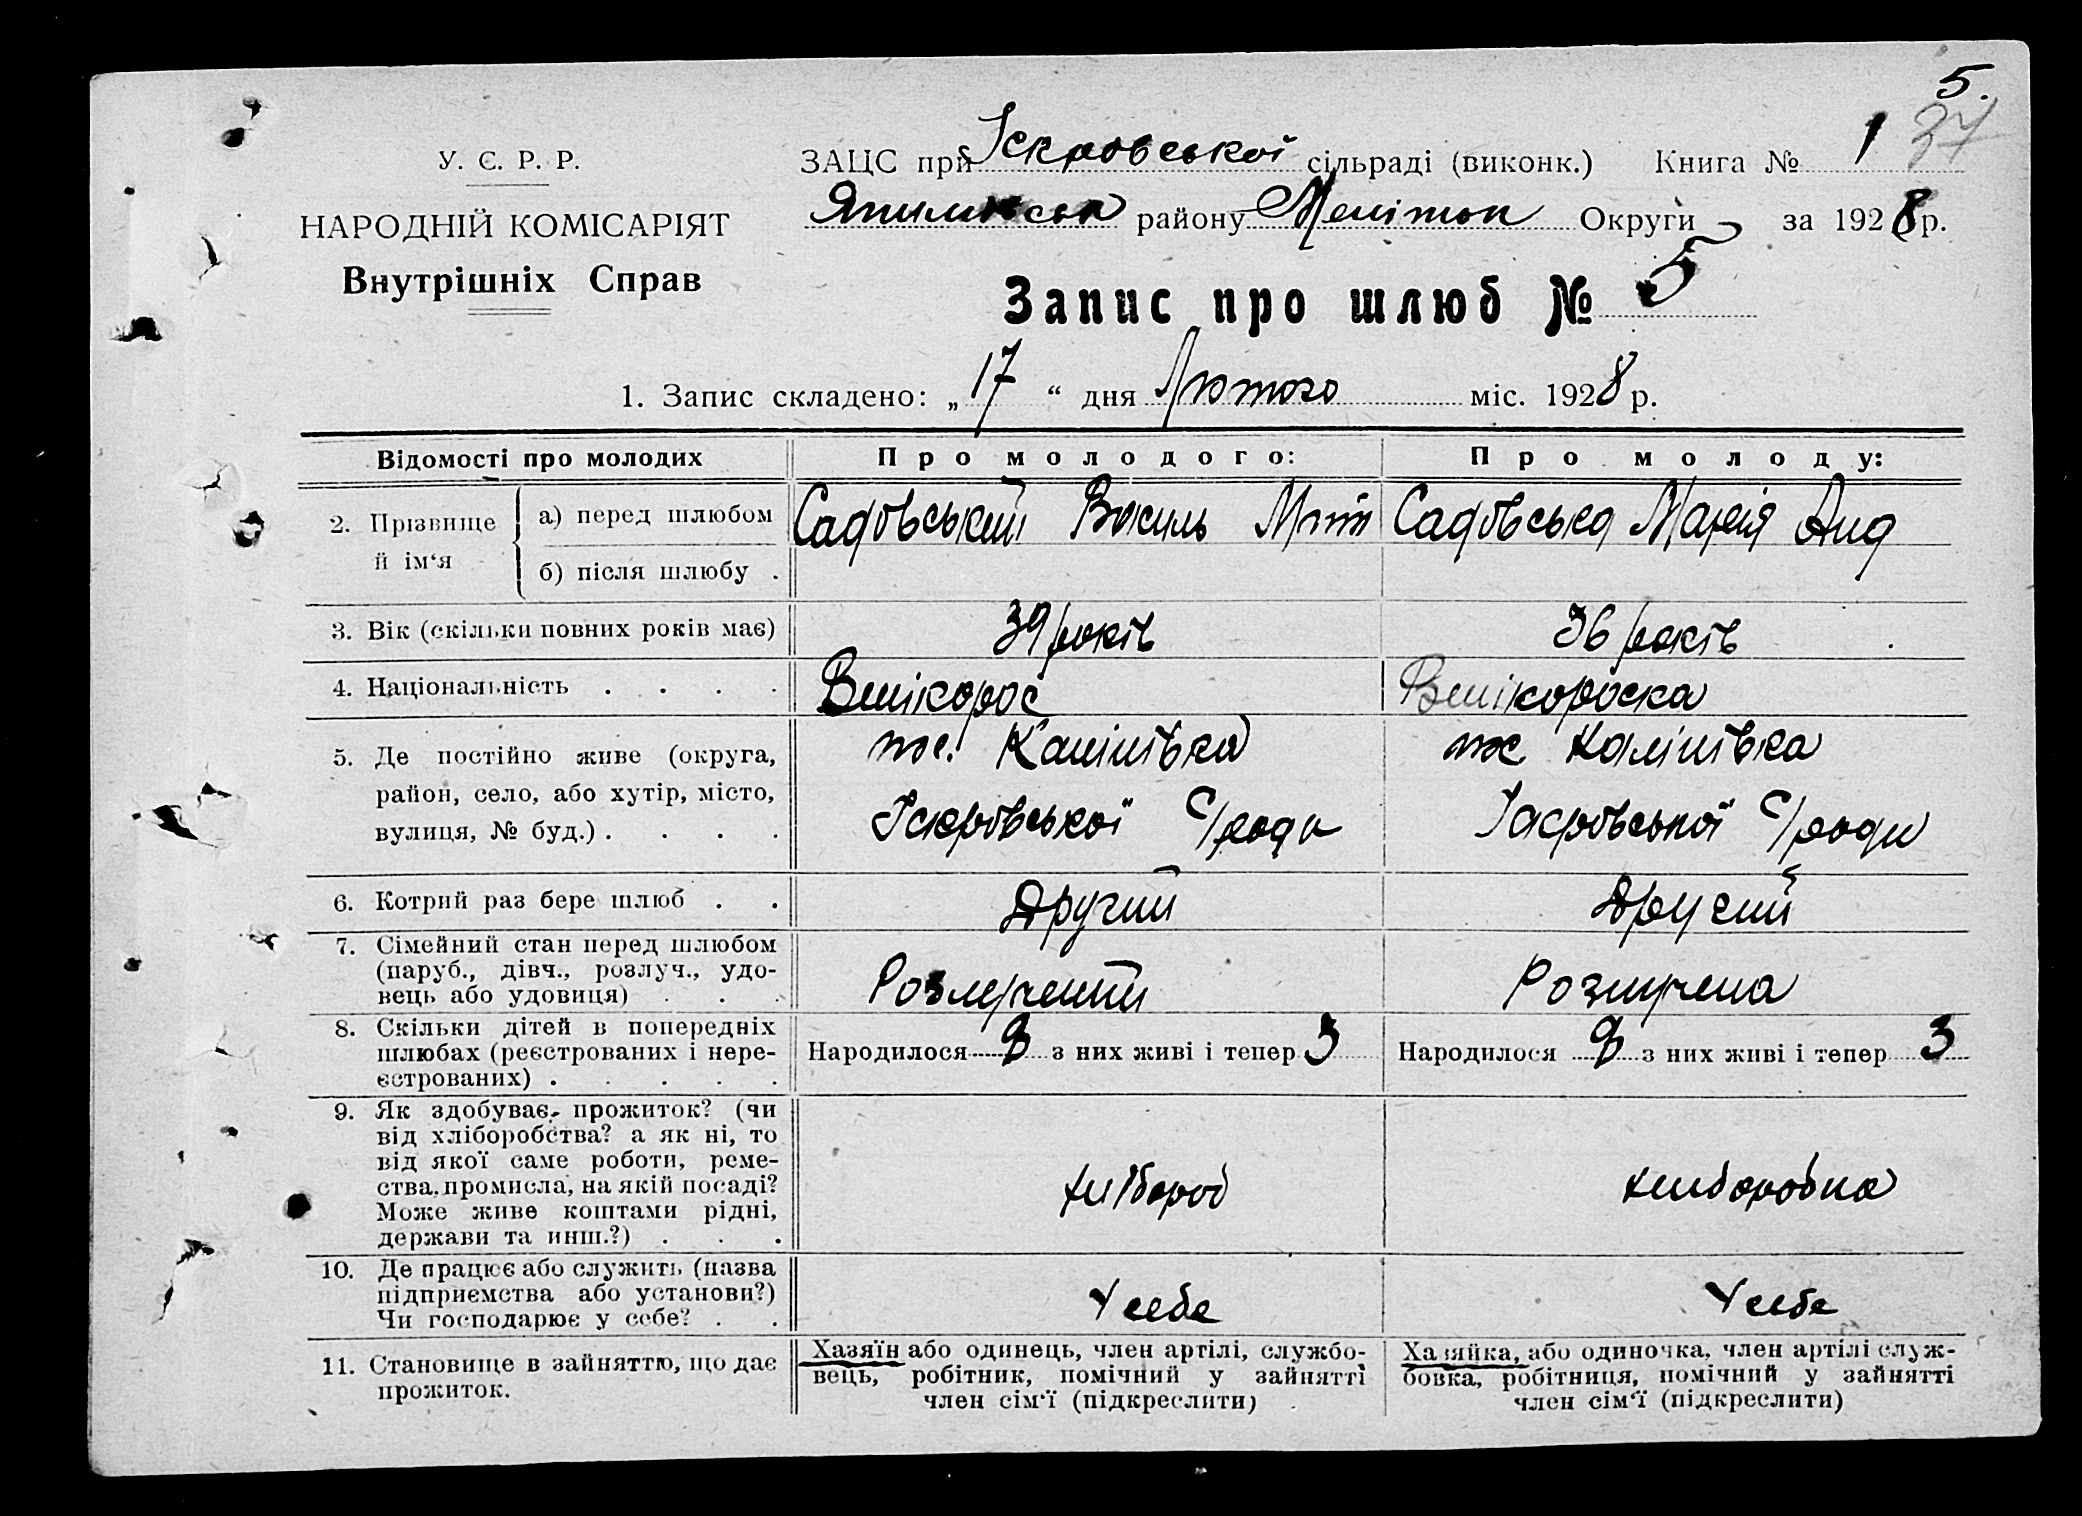 5.
37
У. С. Р. Р.
НАРОДНІЙ КОМІСАРІЯТ
Внутрішніх Справ
ЗАЦС при Іскровської сільраді (виконк.) Книга № 1
району Меліток Округи за 1928 р.
Запис про шлюб № 5
1. Запис складено: „17“ дня Лютого міс. 1928 р.
Відомості про молодих
Про молодого:
Про молоду:
2. Прізвище й ім‘я
а) перед шлюбом
Садовський Василь Мит
Садовська Марія Анд
б) після шлюбу .
3. Вік (скільки повних років має)
39 років
36 років
4. Національність . . . .
Велікорос
Велікороска
5. Де постійно живе (округа,
район, село, або хутір, місто,
вулиця, № буд.) . . . .
пос. Калінівка
Іскровської С/ради
пос. Калінівка
Іскровської С/ради
6. Котрий раз бере шлюб . .
Другий
Другий
7. Сімейний стан перед шлюбом
(паруб., дівч., розлуч., удо-
вець або удовиця) . . .
Розлучений
Розлучена
8. Скільки дітей в попередніх
шлюбах (реєстрованих і нере-
єстрованих) . . . . .
Народилося 8 з них живі і тепер 3
Народилося 8 з них живі і тепер 3
9. Як здобуває прожиток? (чи
від хліборобства? а як ні, то
від якої саме роботи, реме-
ства, промисла, на якій посаді?
Може живе коштами рідні,
держави та инш.?) . . .
хлібороб
хліборобка
10. Де працює або служить (назва
підприємства або установи?)
Чи господарює у себе? . .
У себе
У себе
11. Становище в зайняттю, що дає
прожиток.
Хазяїн або одинець, член артілі, службо-
вець, робітник, помічний у зайнятті
член сім‘ї (підкреслити)
Хазяйка, або одиночка, член артілі служ-
бовка, робітниця, помічний у зайнятті
член сім‘ї (підкреслити)